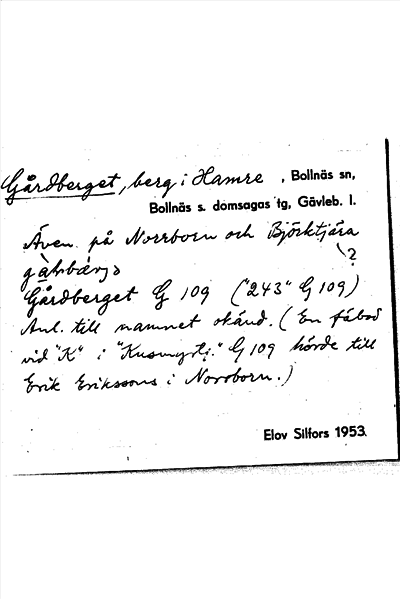 Gårdberget, berg i Hamre, Bollnäs sn,
Bollnäs s. domsagas tg, Gävleb. l.
Även på Norrborn och Björktjära
?
Gårdberget G 109 ("243" G 109)
Anl. till namnet okänd. (En fäbod
vid "K" i "Kusmyrtj." G 109 hörde till
Erik Erikssons i Norrborn.)
Elov Silfors 1953.